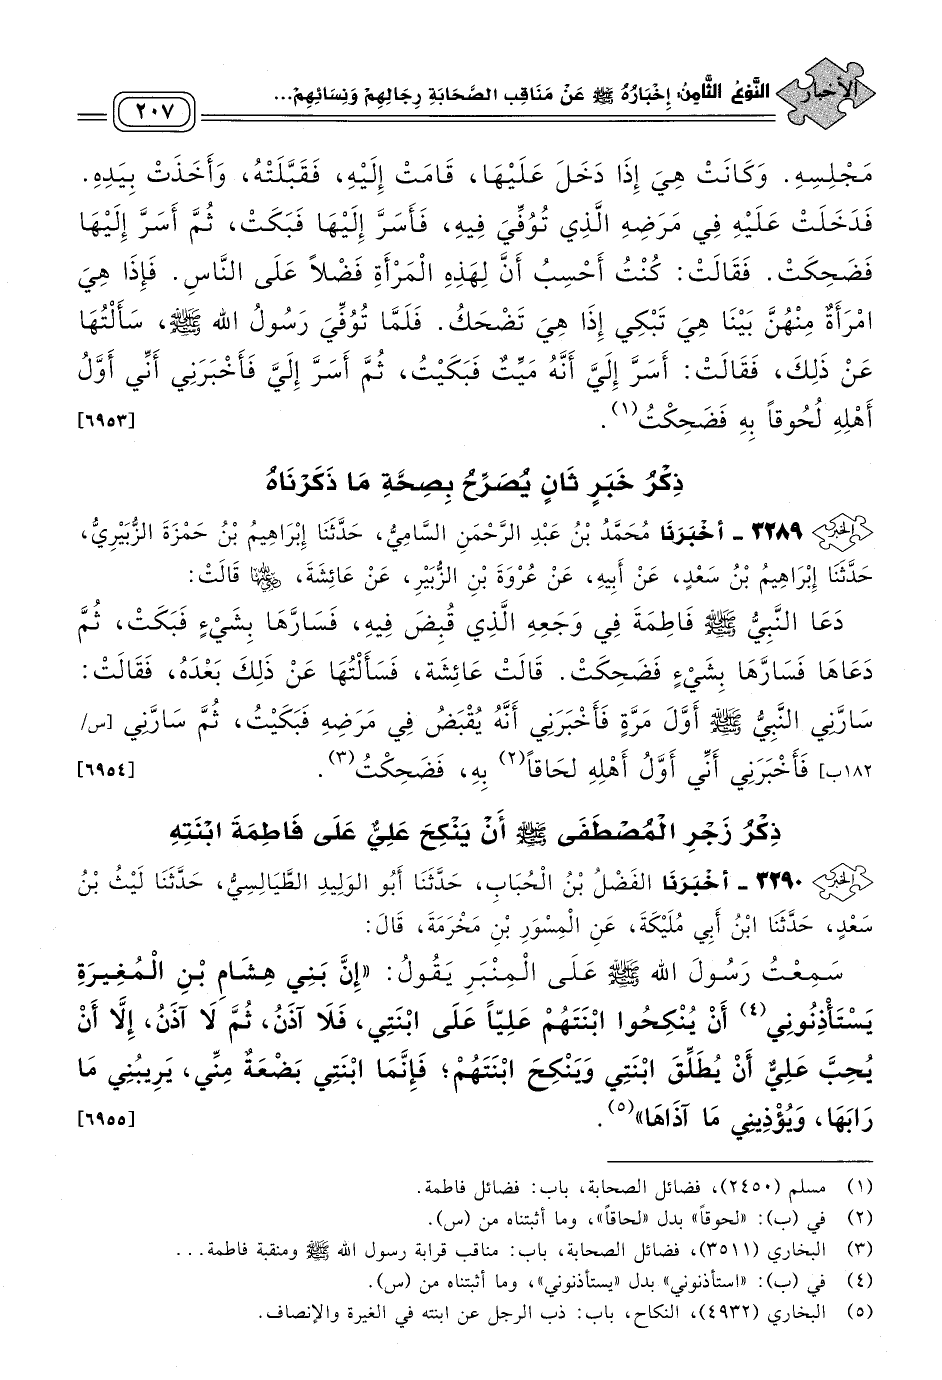 الأخبار
النَّوْعُ الثَّامِنُ: إِخْبَارُهُ ﷺ عَنْ مَنَاقِبِ الصَّحَابَةِ رِجَالِهِمْ وَنِسَائِهِمْ...
٢٠٧
مَجْلِسِهِ. وَكَانَتْ هِيَ إِذَا دَخَلَ عَلَيْهَا، قَامَتْ إِلَيْهِ، فَقَبَّلَتْهُ، وَأَخَذَتْ بِيَدِهِ.
فَدَخَلَتْ عَلَيْهِ فِي مَرَضِهِ الَّذِي تُوُفِّيَ فِيهِ، فَأَسَرَّ إِلَيْهَا فَبَكَتْ، ثُمَّ أَسَرَّ إِلَيْهَا
فَضَحِكَتْ. فَقَالَتْ: كُنْتُ أَحْسِبُ أَنَّ لِهَذِهِ الْمَرْأَةِ فَضْلاً عَلَى النَّاسِ. فَإِذَا هِيَ
امْرَأَةٌ مِنْهُنَّ بَيْنَا هِيَ تَبْكِي إِذَا هِيَ تَضْحَكُ. فَلَمَّا تُوُفِّيَ رَسُولُ الله ﷺ، سَأَلْتُهَا
عَنْ ذَلِكَ، فَقَالَتْ: أَسَرَّ إِلَيَّ أَنَّهُ مَيِّتٌ فَبَكَيْتُ، ثُمَّ أَسَرَّ إِلَيَّ فَأَخْبَرَنِي أَنِّي أَوَّلُ
أَهْلِهِ لُحُوقاً بِهِ فَضَحِكْتُ(١). [٦٩٥٣]
ذِكْرُ خَبَرٍ ثَانٍ يُصَرِّحُ بِصِحَّةِ مَا ذَكَرْنَاهُ
٣٢٨٩ - أَخْبَرَنَا مُحَمَّدُ بْنُ عَبْدِ الرَّحْمَنِ السَّامِيُّ، حَدَّثَنَا إِبْرَاهِيمُ بْنُ حَمْزَةَ الزُّبَيْرِيُّ،
حَدَّثَنَا إِبْرَاهِيمُ بْنُ سَعْدٍ، عَنْ أَبِيهِ، عَنْ عُرْوَةَ بْنِ الزُّبَيْرِ، عَنْ عَائِشَةَ، رضي الله عنها قَالَتْ:
دَعَا النَّبِيُّ ﷺ فَاطِمَةَ فِي وَجَعِهِ الَّذِي قُبِضَ فِيهِ، فَسَارَّهَا بِشَيْءٍ فَبَكَتْ، ثُمَّ
دَعَاهَا فَسَارَّهَا بِشَيْءٍ فَضَحِكَتْ. قَالَتْ عَائِشَة، فَسَأَلْتُهَا عَنْ ذَلِكَ بَعْدَهُ، فَقَالَتْ:
سَارَّنِي النَّبِيُّ ﷺ أَوَّلَ مَرَّةٍ فَأَخْبَرَنِي أَنَّهُ يُقْبَضُ فِي مَرَضِهِ فَبَكَيْتُ، ثُمَّ سَارَّنِي [س/
١٨٢ب] فَأَخْبَرَنِي أَنِّي أَوَّلُ أَهْلِهِ لَحَاقاً(٢) بِهِ، فَضَحِكْتُ(٣). [٦٩٥٤]
ذِكْرُ زَجْرِ الْمُصْطَفَى ﷺ أَنْ يَنْكِحَ عَلِيٌّ عَلَى فَاطِمَةَ ابْنَتِهِ
٣٢٩٠ - أَخْبَرَنَا الفَضْلُ بْنُ الْحُبَابِ، حَدَّثَنَا أَبُو الوَلِيدِ الطَّيَالِسِيُّ، حَدَّثَنَا لَيْثُ بْنُ
سَعْدٍ، حَدَّثَنَا ابْنُ أَبِي مُلَيْكَةَ، عَنِ الْمِسْوَرِ بْنِ مَخْرَمَةَ، قَالَ:
سَمِعْتُ رَسُولَ الله ﷺ عَلَى الْمِنْبَرِ يَقُولُ: «إِنَّ بَنِي هِشَامِ بْنِ الْمُغِيرَةِ
يَسْتَأْذِنُونِي(٤) أَنْ يُنْكِحُوا ابْنَتَهُمْ عَلِيّاً عَلَى ابْنَتِي، فَلَا آذَنُ، ثُمَّ لَا آذَنُ، إِلَّا أَنْ
يُحِبَّ عَلِيٌّ أَنْ يُطَلِّقَ ابْنَتِي وَيَنْكِحَ ابْنَتَهُمْ؛ فَإِنَّمَا ابْنَتِي بَضْعَةٌ مِنِّي، يَرِيبُنِي مَا
رَابَهَا، وَيُؤْذِينِي مَا آذَاهَا»(٥). [٦٩٥٥]
(١) مسلم (٢٤٥٠)، فضائل الصحابة، باب: فضائل فاطمة.
(٢) في (ب): «لحوقاً» بدل «لحاقاً»، وما أثبتناه من (س).
(٣) البخاري (٣٥١١)، فضائل الصحابة، باب: مناقب قرابة رسول الله ﷺ ومنقبة فاطمة...
(٤) في (ب): «استأذنوني» بدل «يستأذنوني»، وما أثبتناه من (س).
(٥) البخاري (٤٩٣٢)، النكاح، باب: ذب الرجل عن ابنته في الغيرة والإنصاف.